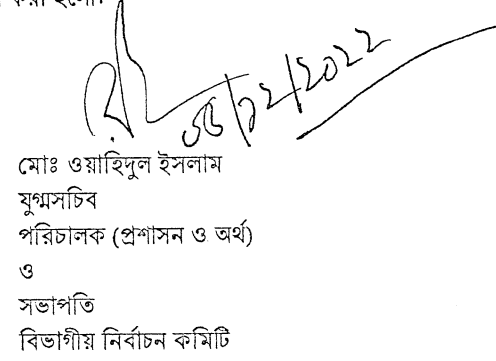 করা হলো।
মোঃ ওয়াহিদুল ইসলাম
যুগ্মসচিব
পরিচালক (প্রশাসন ও অর্থ)
ও
সভাপতি
বিভাগীয় নির্বাচন কমিটি